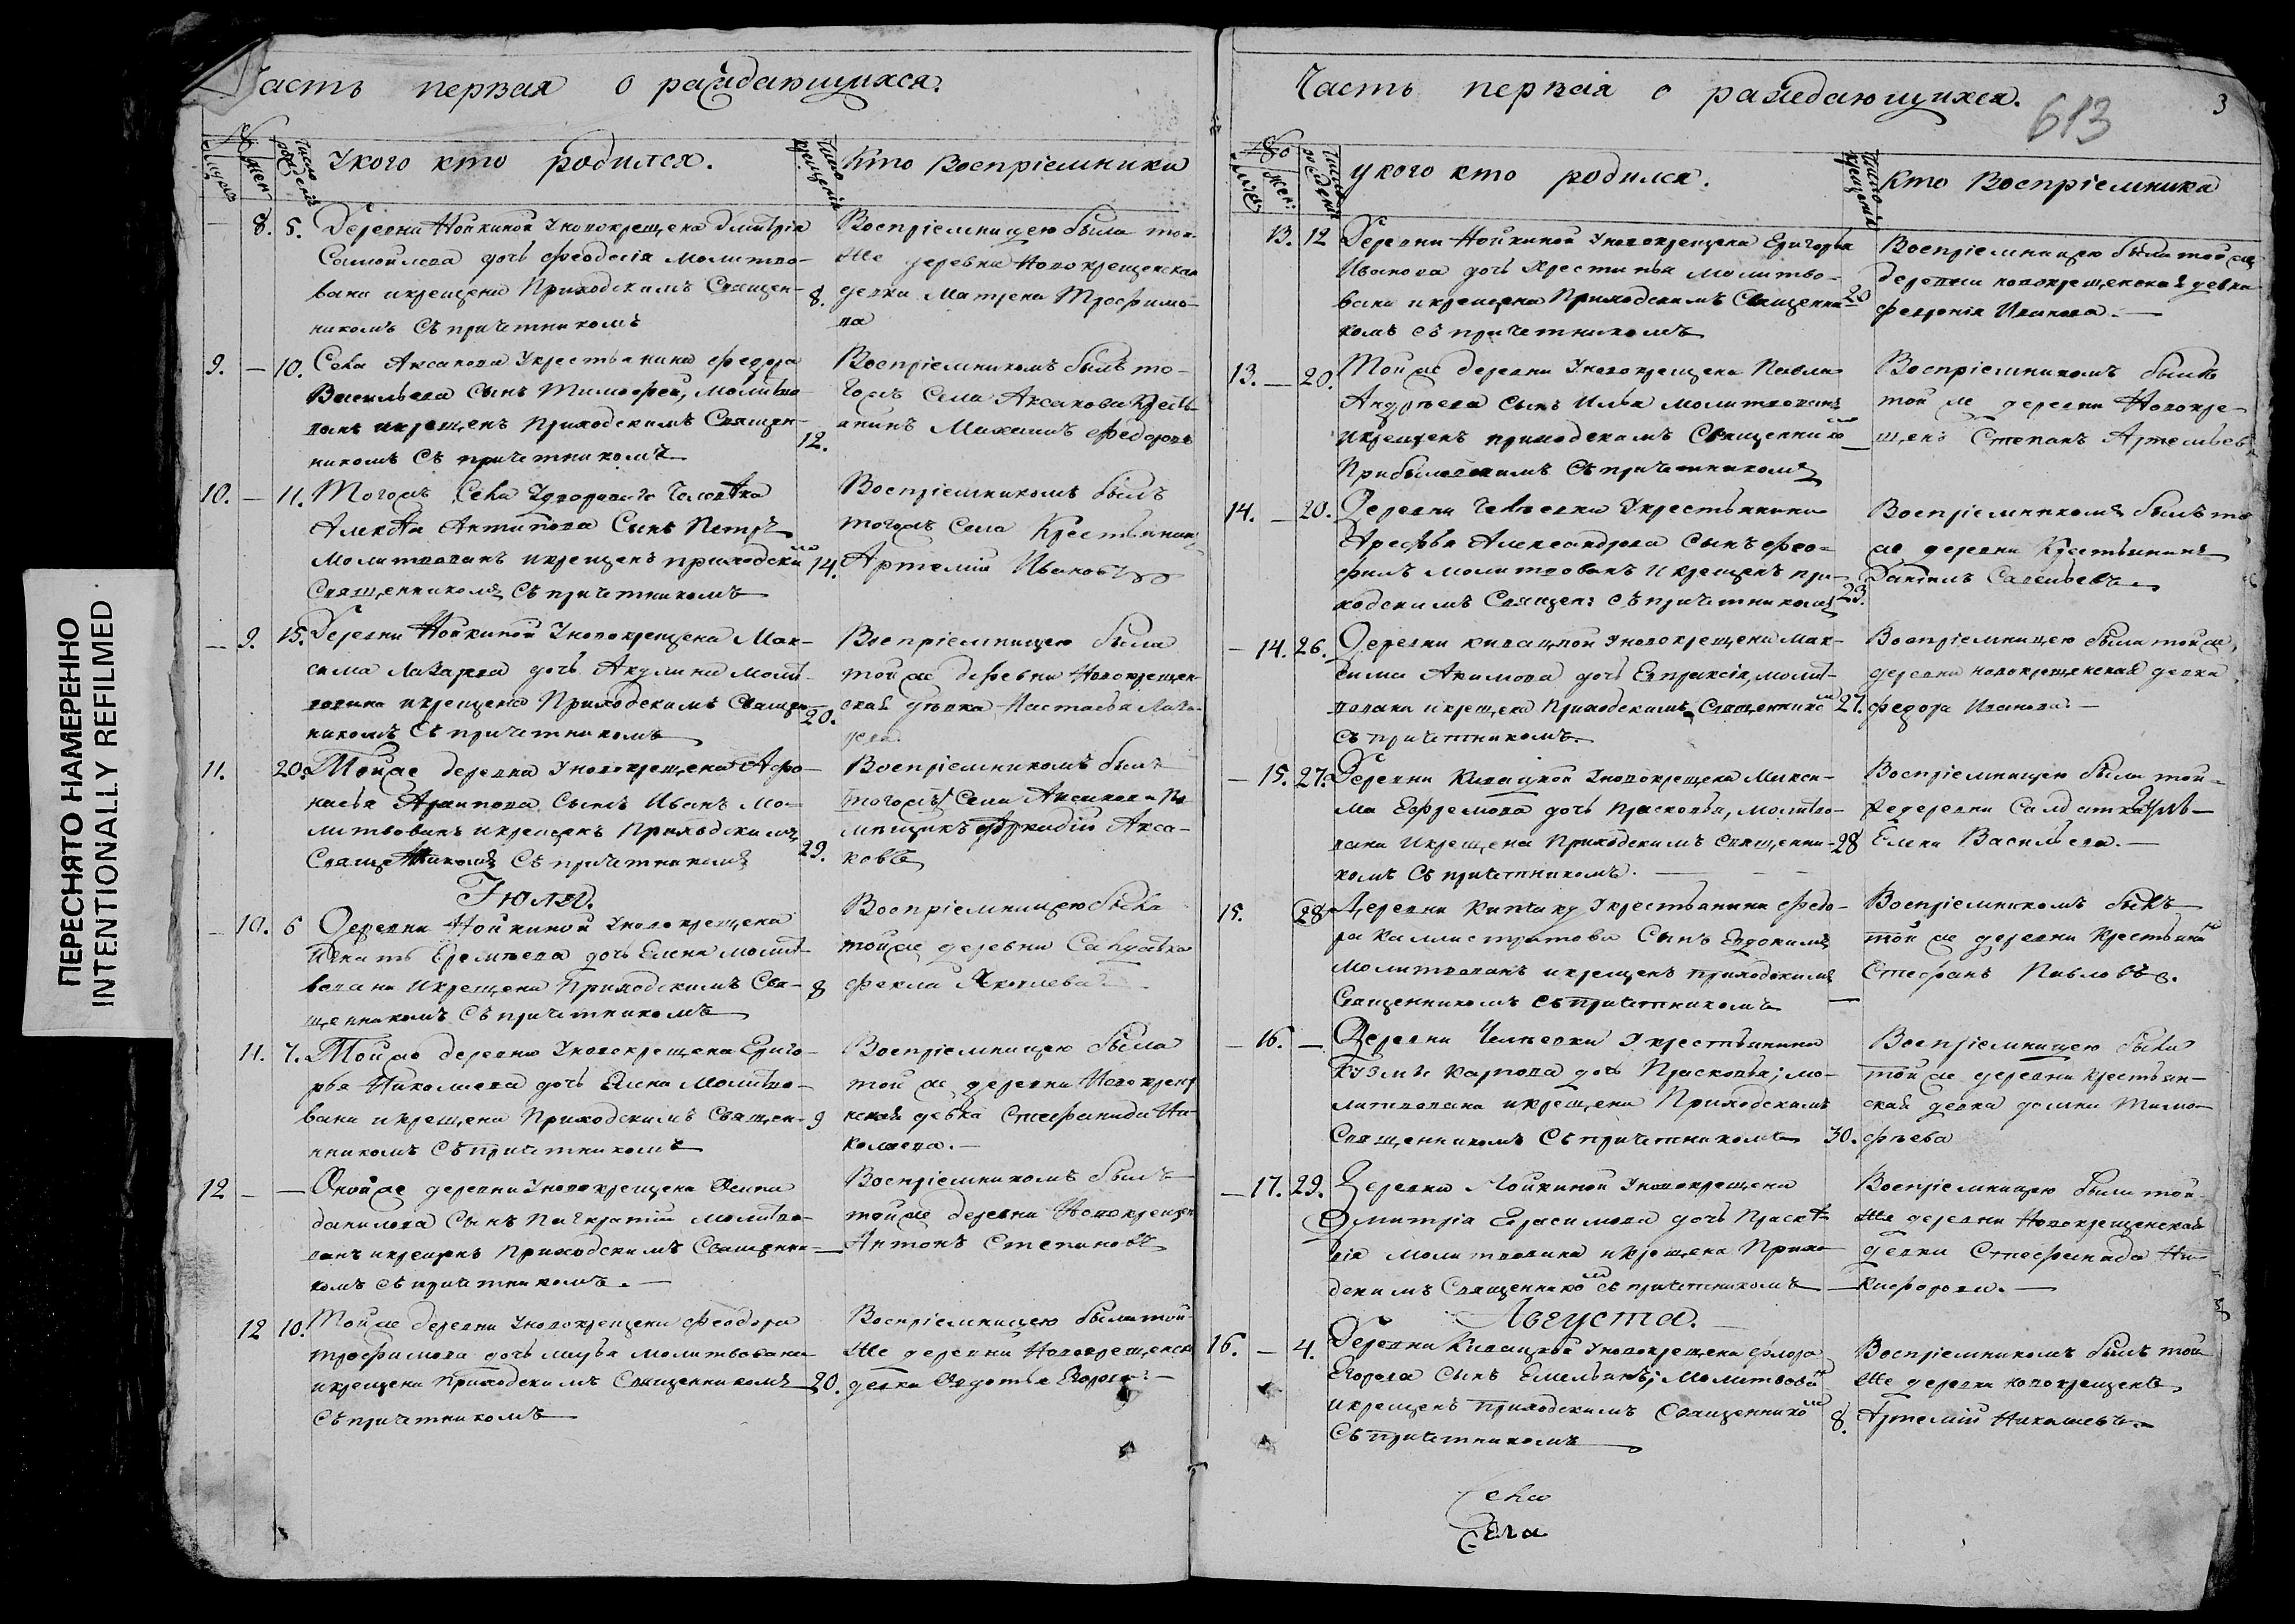 ПЕРЕСНЯТО НАМЕРЕННО
INTENTIONALLY REFILMED
Часть первая о раждающихся.
№
муж. жен. Число рожденія
У кого кто родился.
Число крещенія
Кто Воспріемники
8. 5. Деревни Нойкиной Уновокрещена Дмитрія
Самойлова дочь Феодосія молитво-
вана икрещена Приходскимъ Священ-
никомъ Съ причетникомъ
Воспріемницею была той-
же деревни Новокрещенская
8. девка Матрена Трофимо-
ва
9. — 10. Села Аксакова Укрестьянина Федора
Васильева Сынъ Тимофей, молитво-
ванъ икрещенъ Приходскимъ Священ-
никомъ Съ причетникомъ
Воспріемникомъ былъ то-
гожъ Села Аксакова Кресть-
12. янинъ Михаилъ Федоровъ
10. — 11. Тогожъ Села Удвороваго Человека
Алексея Антипова Сынъ Петръ
молитвованъ икрещенъ приходским
Священникомъ Съ причетникомъ
Воспріемникомъ былъ
тогожъ Села Крестьянинъ
14. Артемій Ивановъ
— 9. 15. Деревни Нойкиной Уновокрещена Мак-
сима Лазарева дочь Акулина молит-
вована икрещена Приходскимъ Священ-
никомъ Съ причетникомъ
Воспріемницею была
тойже деревни Новокрещен-
20. ская девка Настасья Лаза-
рева
11. 20. Тойже деревни Уновокрещена Афо-
насья Архипова Сынъ Иванъ мо-
литвованъ икрещенъ Приходскимъ
Священникомъ Съ причетникомъ
Воспріемникомъ былъ
тогожъ Села Аксакова По-
мещикъ Аркадій Акса-
29. ковъ
Июля.
— 10. 6 Деревни Нойкиной Уновокрещена
Игнатья Еремеева дочь Елена молит-
вована икрещена Приходскимъ Свя-
щенникомъ Съ причетникомъ
Воспріемницею была
тойже деревни Салдатка
8 Фекла Яковлева
11. 7. Тойже деревни Уновокрещена Григо-
рья Николаева дочь Елена молитво-
вана икрещена Приходскимъ Священ-
никомъ Съ причетникомъ
Воспріемницею была
той же деревни Новокрещен
9 ская девка Стефанида Ни-
колаева.
12 — — Оной же деревни Уновокрещена Осипа
Данилова Сынъ Панкратій молитво-
ванъ икрещенъ Приходскимъ Священни-
комъ съ причетникомъ.
Воспріемникомъ былъ
тойже деревни Новокрещен
— Антонъ Степановъ
12 10. Тойже деревни Уновокрещена Феодора
Трофимова дочь Марья молитвована
икрещена Приходскимъ Священникомъ
Съ причетникомъ
Воспріемницею была той-
же деревни Новокрещенская
20. девка Федотья Егорова
Часть первая о раждающихся.
613
3
№
муж. жен. Число рожденія
у кого кто родился.
Число крещенія
Кто Воспріемники
13. 12 Деревни Нойкиной Уновокрещена Григорья
Иванова дочь Христина молитво-
вана икрещена Приходскимъ Священни-
комъ съ причетникомъ
Воспріемницею была тойже
деревни новокрещенская девка
20 Феврония Иванова.
13. — 20. Тойже деревни Уновокрещена Павла
Андреева Сынъ Илья молитвованъ
икрещенъ приходскимъ Священником
Прибыловскимъ Съ причетникомъ
Воспріемникомъ былъ
той же деревни Новокре-
— щенъ Степанъ Артемьев
14. — 20. Деревни Челневки Укрестьянина
Арефья Александрова Сынъ Фео-
филъ молитвованъ икрещенъ при-
ходскимъ Священ: съ причетникомъ
Воспріемникомъ былъ той
же деревни Крестьянинъ
Данилъ Савельевъ.
23.
— 14. 26. Деревни Кивацкой Уновокрещена Мак-
сима Акимова дочь Евпраксія, молит-
вована икрещена Приходскимъ Священником
Съ причетникомъ.
Воспріемницею была тойже
деревни новокрещенская девка
27. Федора Иванова.
— 15. 27. Деревни Кивацкой Уновокрещена Макси-
ма Ефремова дочь Прасковья, молитво-
вана икрещена Приходскимъ Священни-
комъ Съ причетникомъ.
Воспріемницею была той-
же деревни Салдатка
28 Елена Васильева.
15. 28. Деревни Кипчаку Укрестьянина Федо-
ра Каллистратова Сынъ Евдокимъ
молитвованъ икрещенъ приходскимъ
Священникомъ съ причетникомъ
Воспріемникомъ былъ
той же деревни Крестьянин
— Стефанъ Павловъ.
— 16. — Деревни Челневки Укрестьянина
Кузмы Карпова дочь Прасковья; мо-
литвована икрещена Приходскимъ
Священникомъ Съ причетникомъ
Воспріемницею была
той же деревни крестьян-
ская девка Домна Тимо-
30. феева
— 17. 29. Деревни Нойкиной Уновокрещена
Дмитрія Герасимова дочь Праско-
вія молитвована икрещена Прихо-
дскимъ Священником съ причетникомъ
Воспріемницею была той-
же деревни Новокрещенская
девка Стефанида Ни-
— кифорова.
Августа.
16. — 4. Деревни Кивацкой Уновокрещена Флора
Егорова Сынъ Емельянъ; молитвован
икрещенъ Приходскимъ Священником
Съ причетникомъ
Воспріемникомъ былъ той-
же деревни новокрещенъ
8. Артемій Николаевъ.
Села
Села